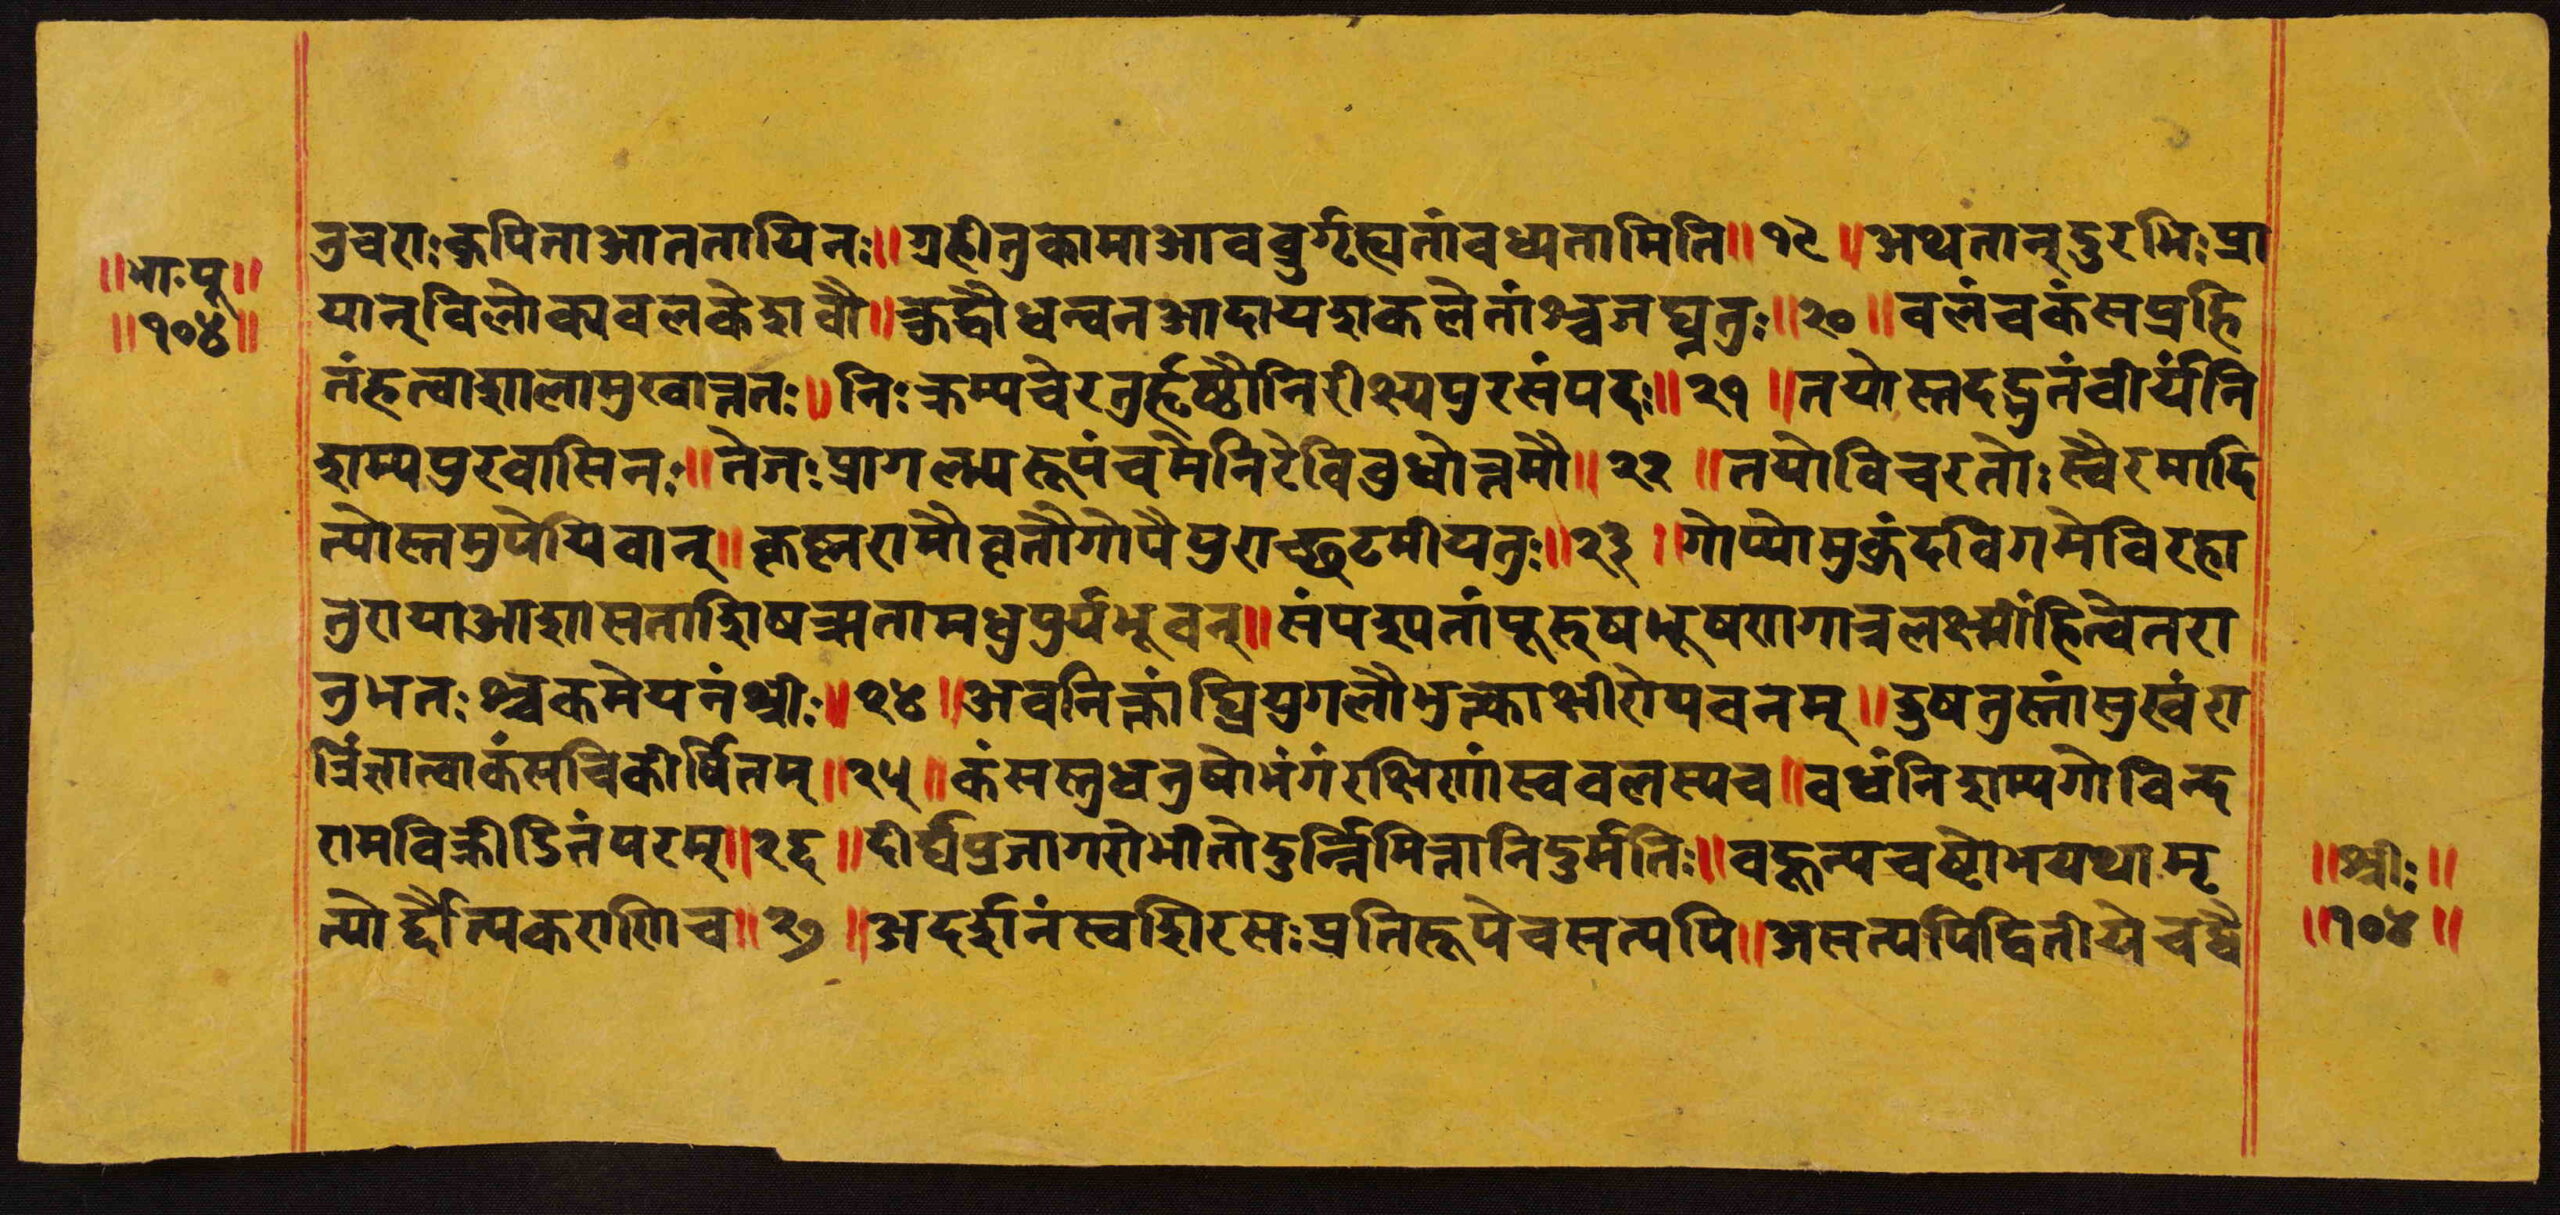 ॥भा॰पू॥
॥१०४॥
नुचराः कुपिता आततायिनः॥ ग्रहीतुकामा आवव्रुर्गृह्यतां वध्यतामिति॥ १९ ॥ अथ तान् दुरभिःप्रा
यान् विलोक्य वलकेशवौ॥ क्रुद्धौ धन्वन आदाय शकले तांश्च जघ्नतुः॥ २० ॥ वलं च कंसप्रहि
तं हत्वा शालामुखात्ततः॥ निःक्रम्य चेरतुर्हृष्टौ निरीक्ष्य पुरसंपदः॥ २१ ॥ तयोस्तदद्भुतं वीर्यं नि
शम्य पुरवासिनः॥ तेजः प्रागल्भ्यरूपं च मेनिरे विवुधोत्तमौ॥ २२ ॥ तयोविचरतोः स्वैरमादि
त्योस्तमुपेयिवान्॥ कृष्णरामौ वृतौ गोपै पुराच्छकटमीयतुः॥ २३ ॥ गोप्यो मुकुंदविगमे विरहा
तुरा या आशासताशिष ऋता मधुपुर्यभूवन्॥ संपश्यतां पूरुषभूषणगात्रलक्ष्मीं हित्वेतरा
नुभजतश्चकमेयनं श्रीः॥ २४ ॥ अवनिक्तांघ्रियुगलौ भुत्क्वा क्षीरोपवनम्॥ ऊषतुस्तां सुखं रा
त्रिं ज्ञात्वा कंसचिकीर्षितम्॥ २५ ॥ कंसस्तु धनुषो भंगं रक्षिणां स्ववलस्य च॥ वधं निशम्य गोविन्द
रामविक्रीडितं परम्॥ २६ ॥ दीर्घप्रजागरो भीतो दुर्न्निमित्तानि दुर्मतिः॥ वहून्यचष्टोभयथा मृ
त्योर्द्दौत्यकराणि च॥ २७ ॥ अदर्शनं स्वशिरसः प्रतिरूपे च सत्यपि॥ असत्यपि द्वितीये च द्वै
॥श्रीः॥
॥१०४॥